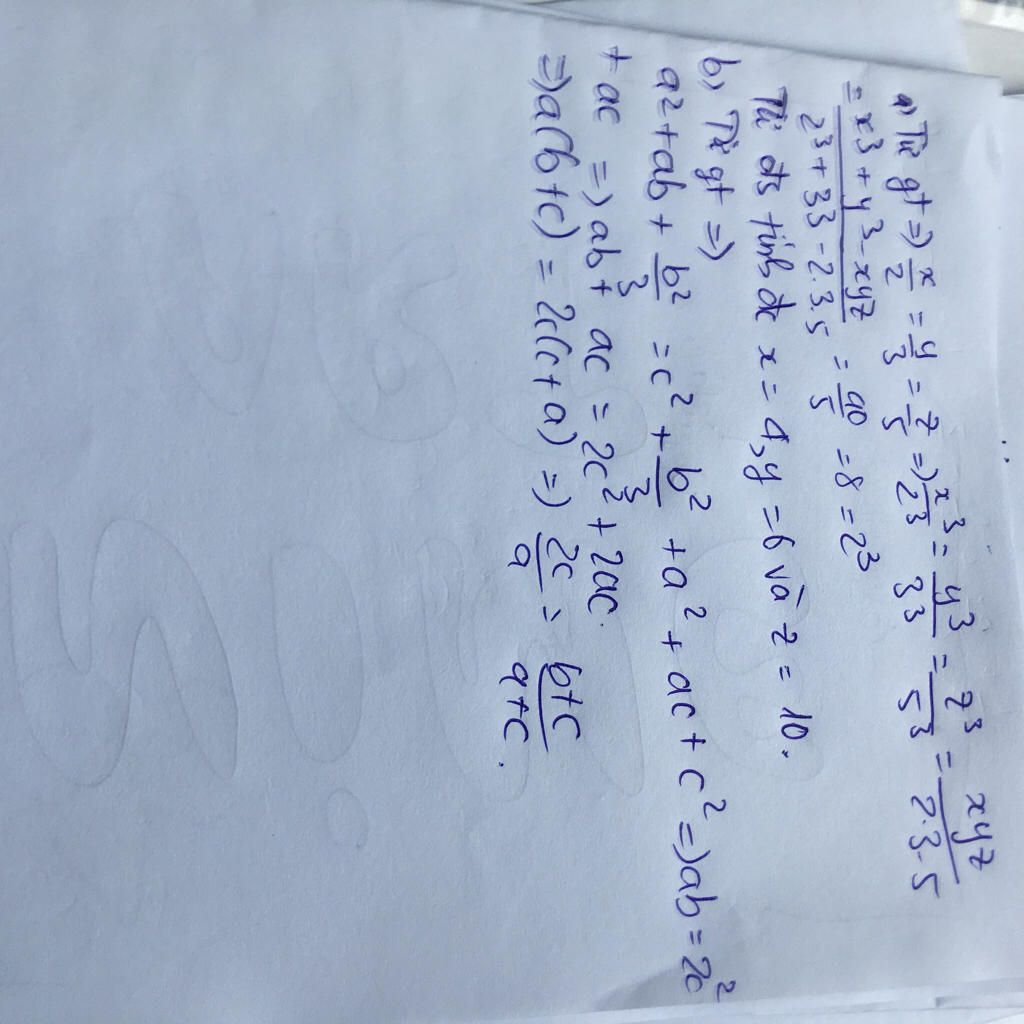 a) Từ gt => x/2 = y/3 = z/5 => x³/2³ = y³/3³ = z³/5³ = xyz/2.3.5
= x³ + y³ - xyz/2³ + 3³ - 2.3.5 = 40/5 = 8 = 2³
Từ đó tính đc x = 4, y = 6 và z = 10.
b) Từ gt =>
a² + ab + b²/3 = c² + b²/3 + a² + ac + c² => ab = 2c²
+ ac => ab + ac = 2c² + 2ac.
=> a(b + c) = 2c(c + a) => 2c/a = b+c/a+c.